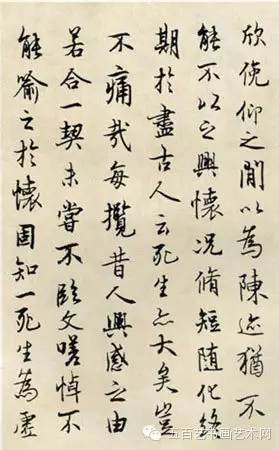 欣俛仰之間以為陳迹猶不
能不以之興懷況脩短随化終
期於盡古人云死生亦大矣豈
不痛哉每攬昔人興感之由
若合一契未嘗不臨文嗟悼不
能喻之於懷固知一死生為虛
五百艺书画艺术网